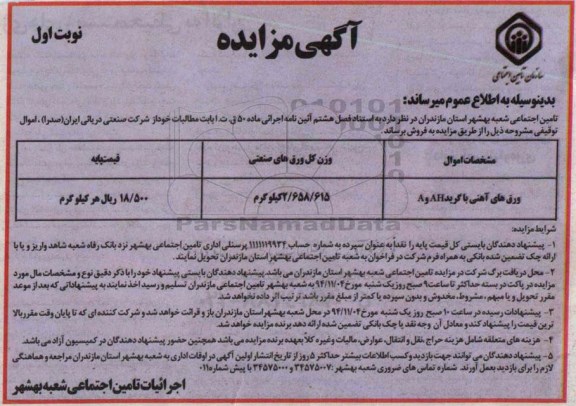 آگهی مزایده
نوبت اول
سازمان تأمین اجتماعی
بدینوسیله به اطلاع عموم میرساند:
تامین اجتماعی شعبه بهشهر استان مازندران در نظر دارد به استناد فصل هشتم آئین نامه اجرائی ماده ۵۰ ق. ت. ا بابت مطالبات خود از شرکت صنعتی دریائی ایران(صدرا) ، اموال
توقیفی مشروحه ذیل را از طریق مزایده به فروش برساند.
مشخصات اموال وزن کل ورق های صنعتی قیمت پایه
ورق های آهنی با گرید AH و A ۲/۶۵۸/۶۱۵ کیلو گرم ۱۸/۵۰۰ ریال هر کیلو گرم
شرایط مزایده:
۱- پیشنهاد دهندگان بایستی کل قیمت پایه را نقدا به عنوان سپرده به شماره حساب ۱۱۱۱۱۱۹۹۳۲ پرسنلی اداری تامین اجتماعی بهشهر نزد بانک رفاه شعبه شاهد واریز و یا با
ارائه چک تضمین شده بانکی به همراه فرم شرکت در فراخوان به شعبه تامین اجتماعی بهشهر استان مازندران تحویل نمایند.
۲- محل دریافت برگ شرکت در مزایده تامین اجتماعی شعبه بهشهر استان مازندران می باشد پیشنهاد دهندگان بایستی پیشنهاد خود را با ذکر دقیق نوع و مشخصات مال مورد
مزایده در پاکت در بسته حداکثر تا ساعت ۹ صبح روز یک شنبه مورخ ۹۴/۱۱/۰۴ به شعبه بهشهر تامین اجتماعی مازندران تسلیم و رسید اخذ نمایند به پیشنهاداتی که بعد از موعد
مقرر تحویل و یا مبهم ، مشروط ، مخدوش و بدون سپرده یا کمتر از مبلغ مقرر باشد ترتیب اثر داده نخواهد شد.
۳- پیشنهادات رسیده در ساعت ۱۰ صبح روز یک شنبه مورخ ۹۴/۱۱/۰۴ در محل شعبه بهشهر استان مازندران باز و قرائت خواهد شد و شرکت کننده ای که تا پایان وقت مقرر بالا
ترین قیمت را پیشنهاد کند و معادل آن وجه نقد یا چک بانکی تضمین شده ارائه دهد برنده مزایده خواهد شد.
۴- هزینه های متعلقه شامل هزینه حراج، نقل و انتقال، عوارض، مالیات و غیره کلا بعهده برنده مزایده می باشد همچنین حضور پیشنهاد دهندگان در کمیسیون آزاد می باشد.
۵- پیشنهاد دهندگان می توانند جهت بازدید و کسب اطلاعات بیشتر حداکثر ۵ روز از تاریخ انتشار اولین آگهی در اوقات اداری به شعبه بهشهر استان مازندران مراجعه و هماهنگی
لازم را برای بازدید بعمل آورند. شماره تماس های ضروری شعبه بهشهر : ۳۴۵۷۵۰۰۷ و ۳۴۵۷۵۰۰۰ با پیش شماره ۰۱۱
اجرائیات تامین اجتماعی شعبه بهشهر
ParsNamadData